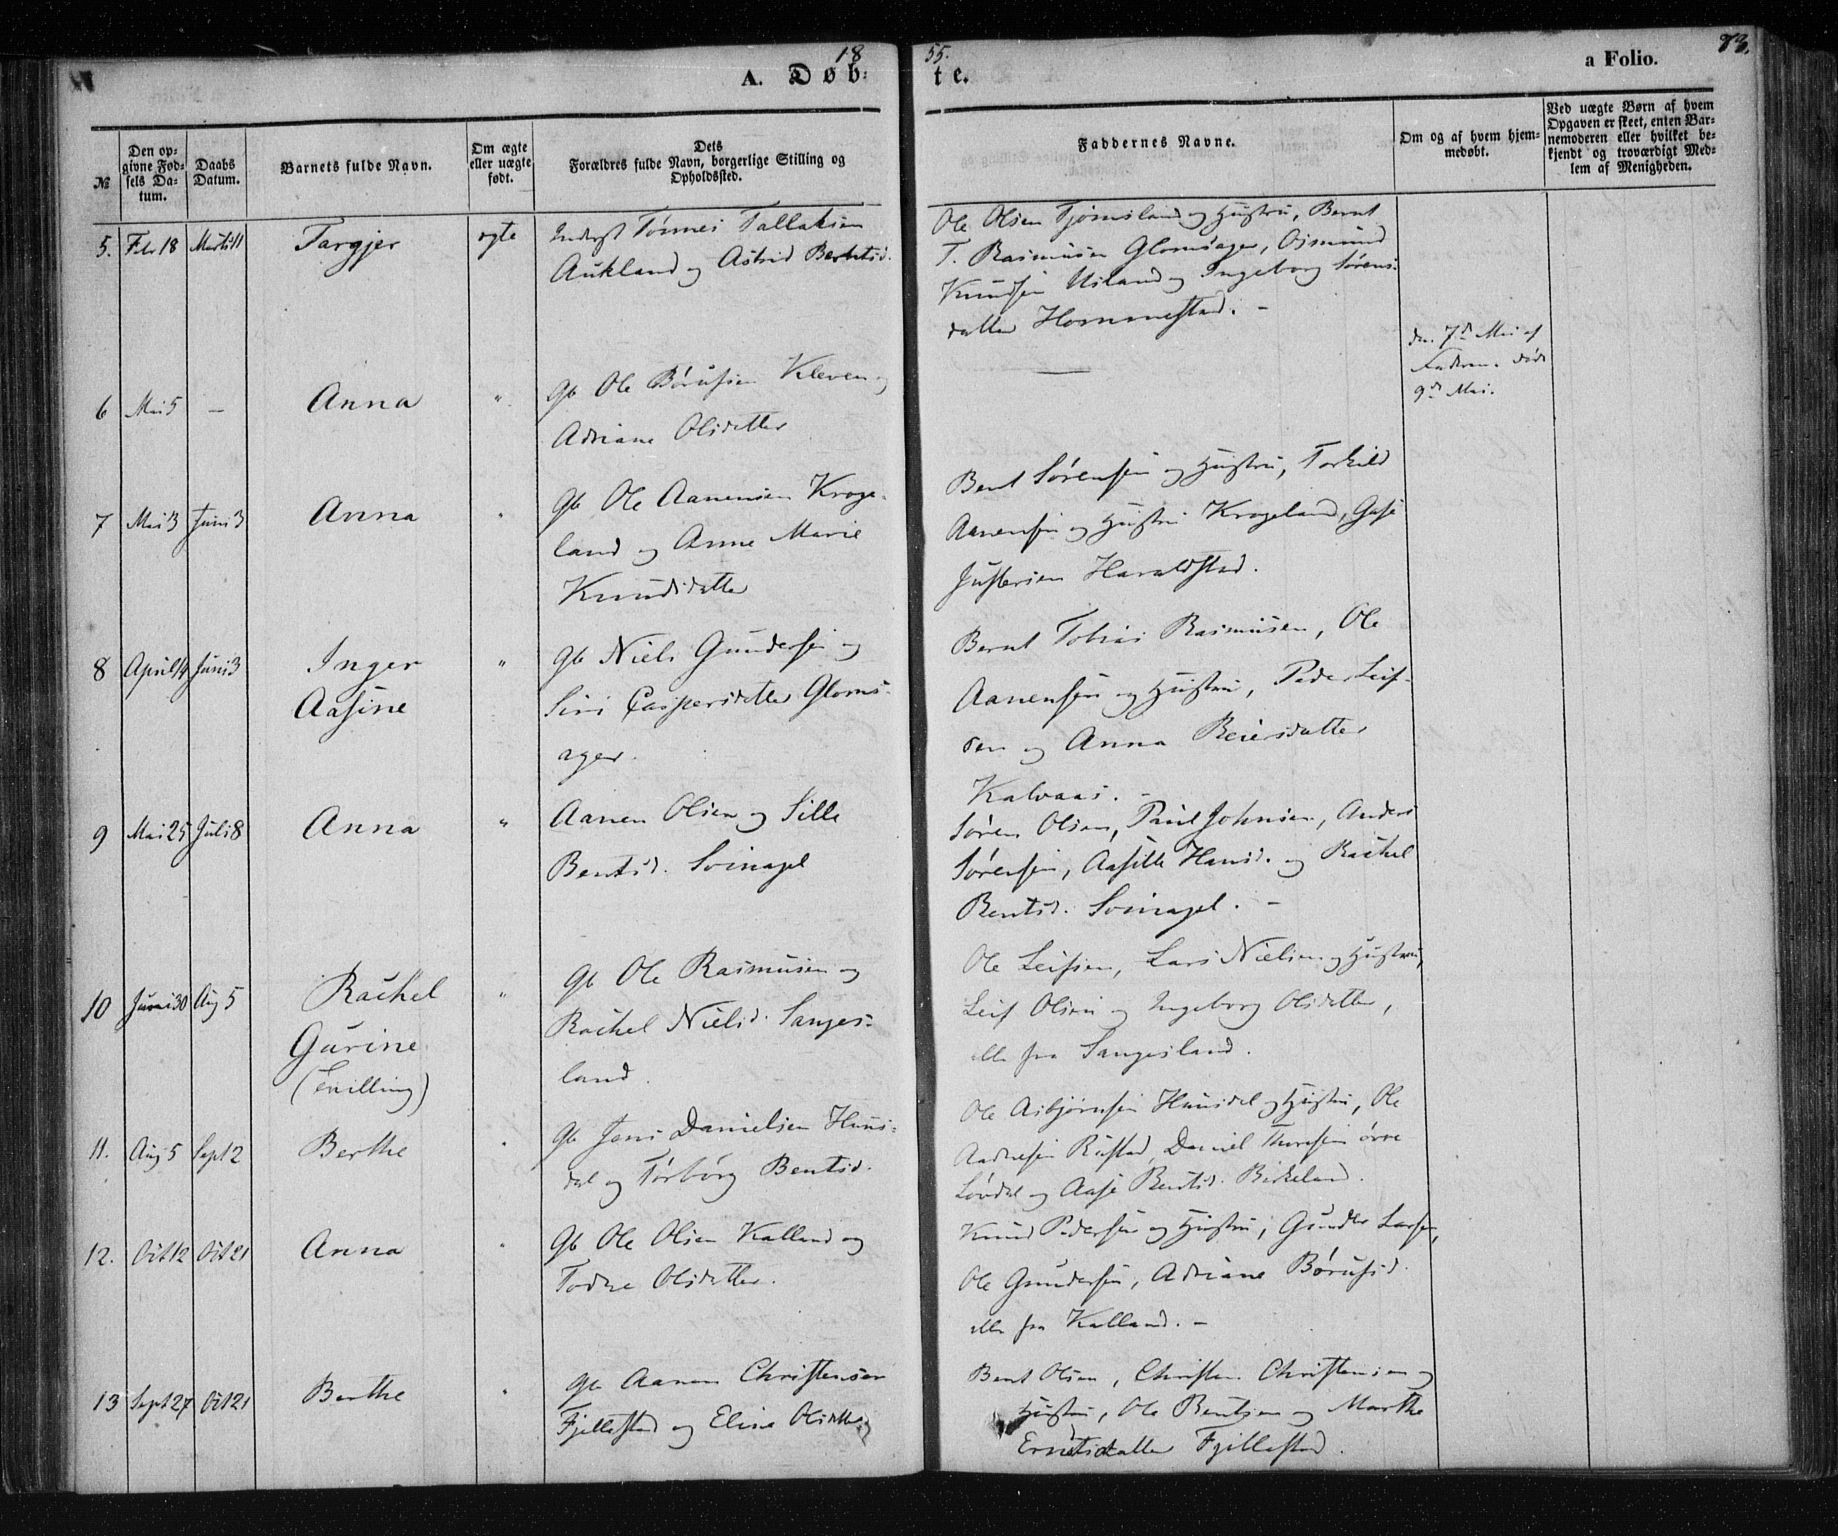 1855.
A. Døb:te.
a Folio.
73.
№
Den op-
givne Fød-
sels Da-
tum.
Daabs
Datum.
Barnets fulde Navn.
Om ægte
eller uægte
født.
Dets
Forældres fulde Navn, borgerlige Stilling og
Opholdssted.
Faddernes Navne.
Om og af hvem hjem-
medøbt.
Ved uægte Børn af hvem
Opgaven er skeet, enten Bar-
nemoderen eller hvilket be-
kjendt og troværdigt Med-
lem af Menigheden.
5. Febr 18 Marts 11 Targjer ægte
Inderst Tønnes Tallaksen
Aukland og Astrid Berntsd.
Ole Olsen Tjomsland og Hustru, Bernt
T. Rasmusen Glomsager, Osmund
Knudsen Usland og Ingeborg Sørens-
datter Hommestad. -
6 Mai 5 - Anna "
Gb Ole Børufsen Kleven og
Adriane Olsdatter
—
den 7de Mai af
Faderen. død
9de Mai.
7 Mai 3 Juni 3 Anna "
Gb Ole Aanensen Kroge-
land og Anne Marie
Knudsdatter
Bent Sørensen og Hustru, Torkild
Aanensen og Hustru Krogeland,
Haraldstad.
8 April 14 Juni 3 Inger
Aasine "
Gb Niels Gundersen og
Siri Caspersdatter Gloms-
ager.
Bernt Tobias Rasmusen, Ole
Aanensen og Hustru, Peder Leif-
sen og Anna Reiersdatter
Kalvaas. -
9 Mai 25 Juli 8 Anna "
Aanen Olsen og Sille
Bentsd. Svinagel
Søren Olsen, Paul Johnsen, Anders
Sørensen, Aasille Hansd. og Rachel
Bentsd. Svinagel. -
10 Juni 30 Aug 5 Rachel
Gurine
(Tvilling) "
Gb Ole Rasmusen og
Rachel Nielsd. Sanges-
land.
Ole Leifsen, Lars Nielsen og Hustru,
Leif Olsen og Ingeborg Olsdatter,
alle fra Sangesland.
11. Aug 5 Sept 2 Berthe "
Gb Jens Danielsen Huns-
dal og Tørborg Bentsd.
Ole Asbjørnsen Hunsdal og Hustru, Ole
Andresen Rustad, Daniel Thoresen øvre
Løvdal og Aase Bentsd. Birkeland.
12. Oct 12 Oct 21 Anna "
Gb Ole Olsen Kalland og
Todne Olsdatter.
Knud Pedersen og Hustru, Gunder Larsen,
Ole Gundersen, Adriane Børufsd.
alle fra Kalland. -
13 Sept 27 Oct 21 Berthe "
Gb Aanen Christensen
Fjellestad og Eline Olsdatter
Bent Olsen, Christen Christensen og
Hustru, Ole Bentsen og Marthe
Erntsdatter Fjellestad.